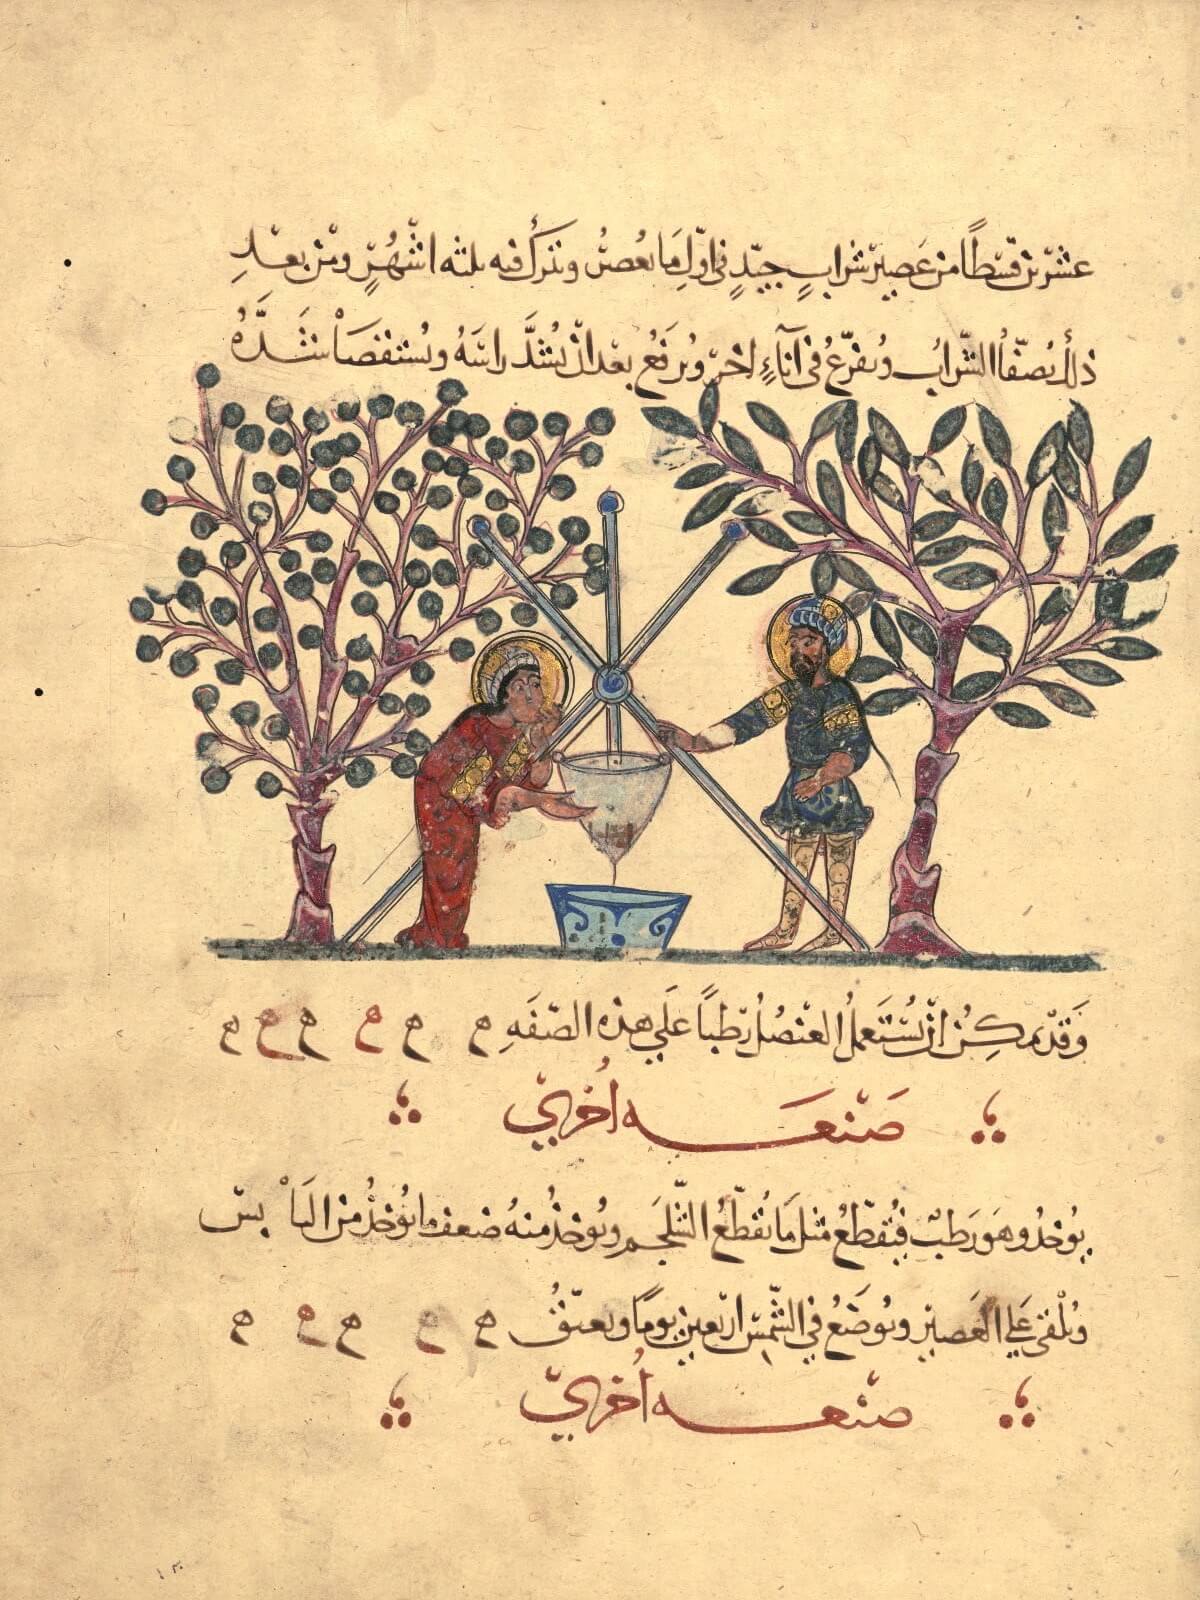 عشرين قسطًا من عصير شرابٍ جيّدٍ في اوّلِ ما يُعصرُ ويتركُ فيه ثلثه اشهُرٍ ومن بعدِ
ذلك يُصفّا الشّرابُ ويفرّغُ في آناءٍ اخر ويُرفعُ بعد ان يُشدَّ راسهُ ويُستقصاْ شدّهُ
وقد يمكنُ ان يُستَعملُ العنصُل رطبًا علي هذه الصّفهِ م م م م م م
صَنعَه اُخري
يُوخذُ وهو رطبٌ فيُقطّعُ مثل ما يُقطّعُ الشّلجم ويُوخذُ منهُ ضعف ما يُوخذُ من الياْبس
ويُلقي علي العَصير ويُوضَعُ في الشّمس اربعين يومًا ويعتّقُ م م م م م
صنعه اُخري